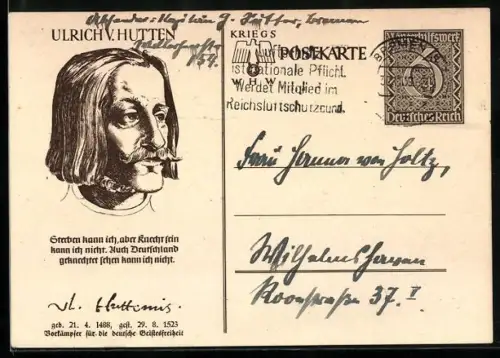 Absender:
ULRICH V. HUTTEN
KRIEGS
POSTKARTE
W H W
Luftschutz
ist nationale Pflicht.
Werdet Mitglied im
Reichsluftschutzbund.
BREMEN
Winterhilfswerk
6
Deutsches Reich
Frau Hanna von Holtz,
Wilhelmshaven
Roonstraße 37. I
Sterben kann ich, aber Knecht sein
kann ich nicht. Auch Deutschland
geknechtet sehen kann ich nicht.
geb. 21. 4. 1488, gest. 29. 8. 1523
Vorkämpfer für die deutsche Geistesfreiheit